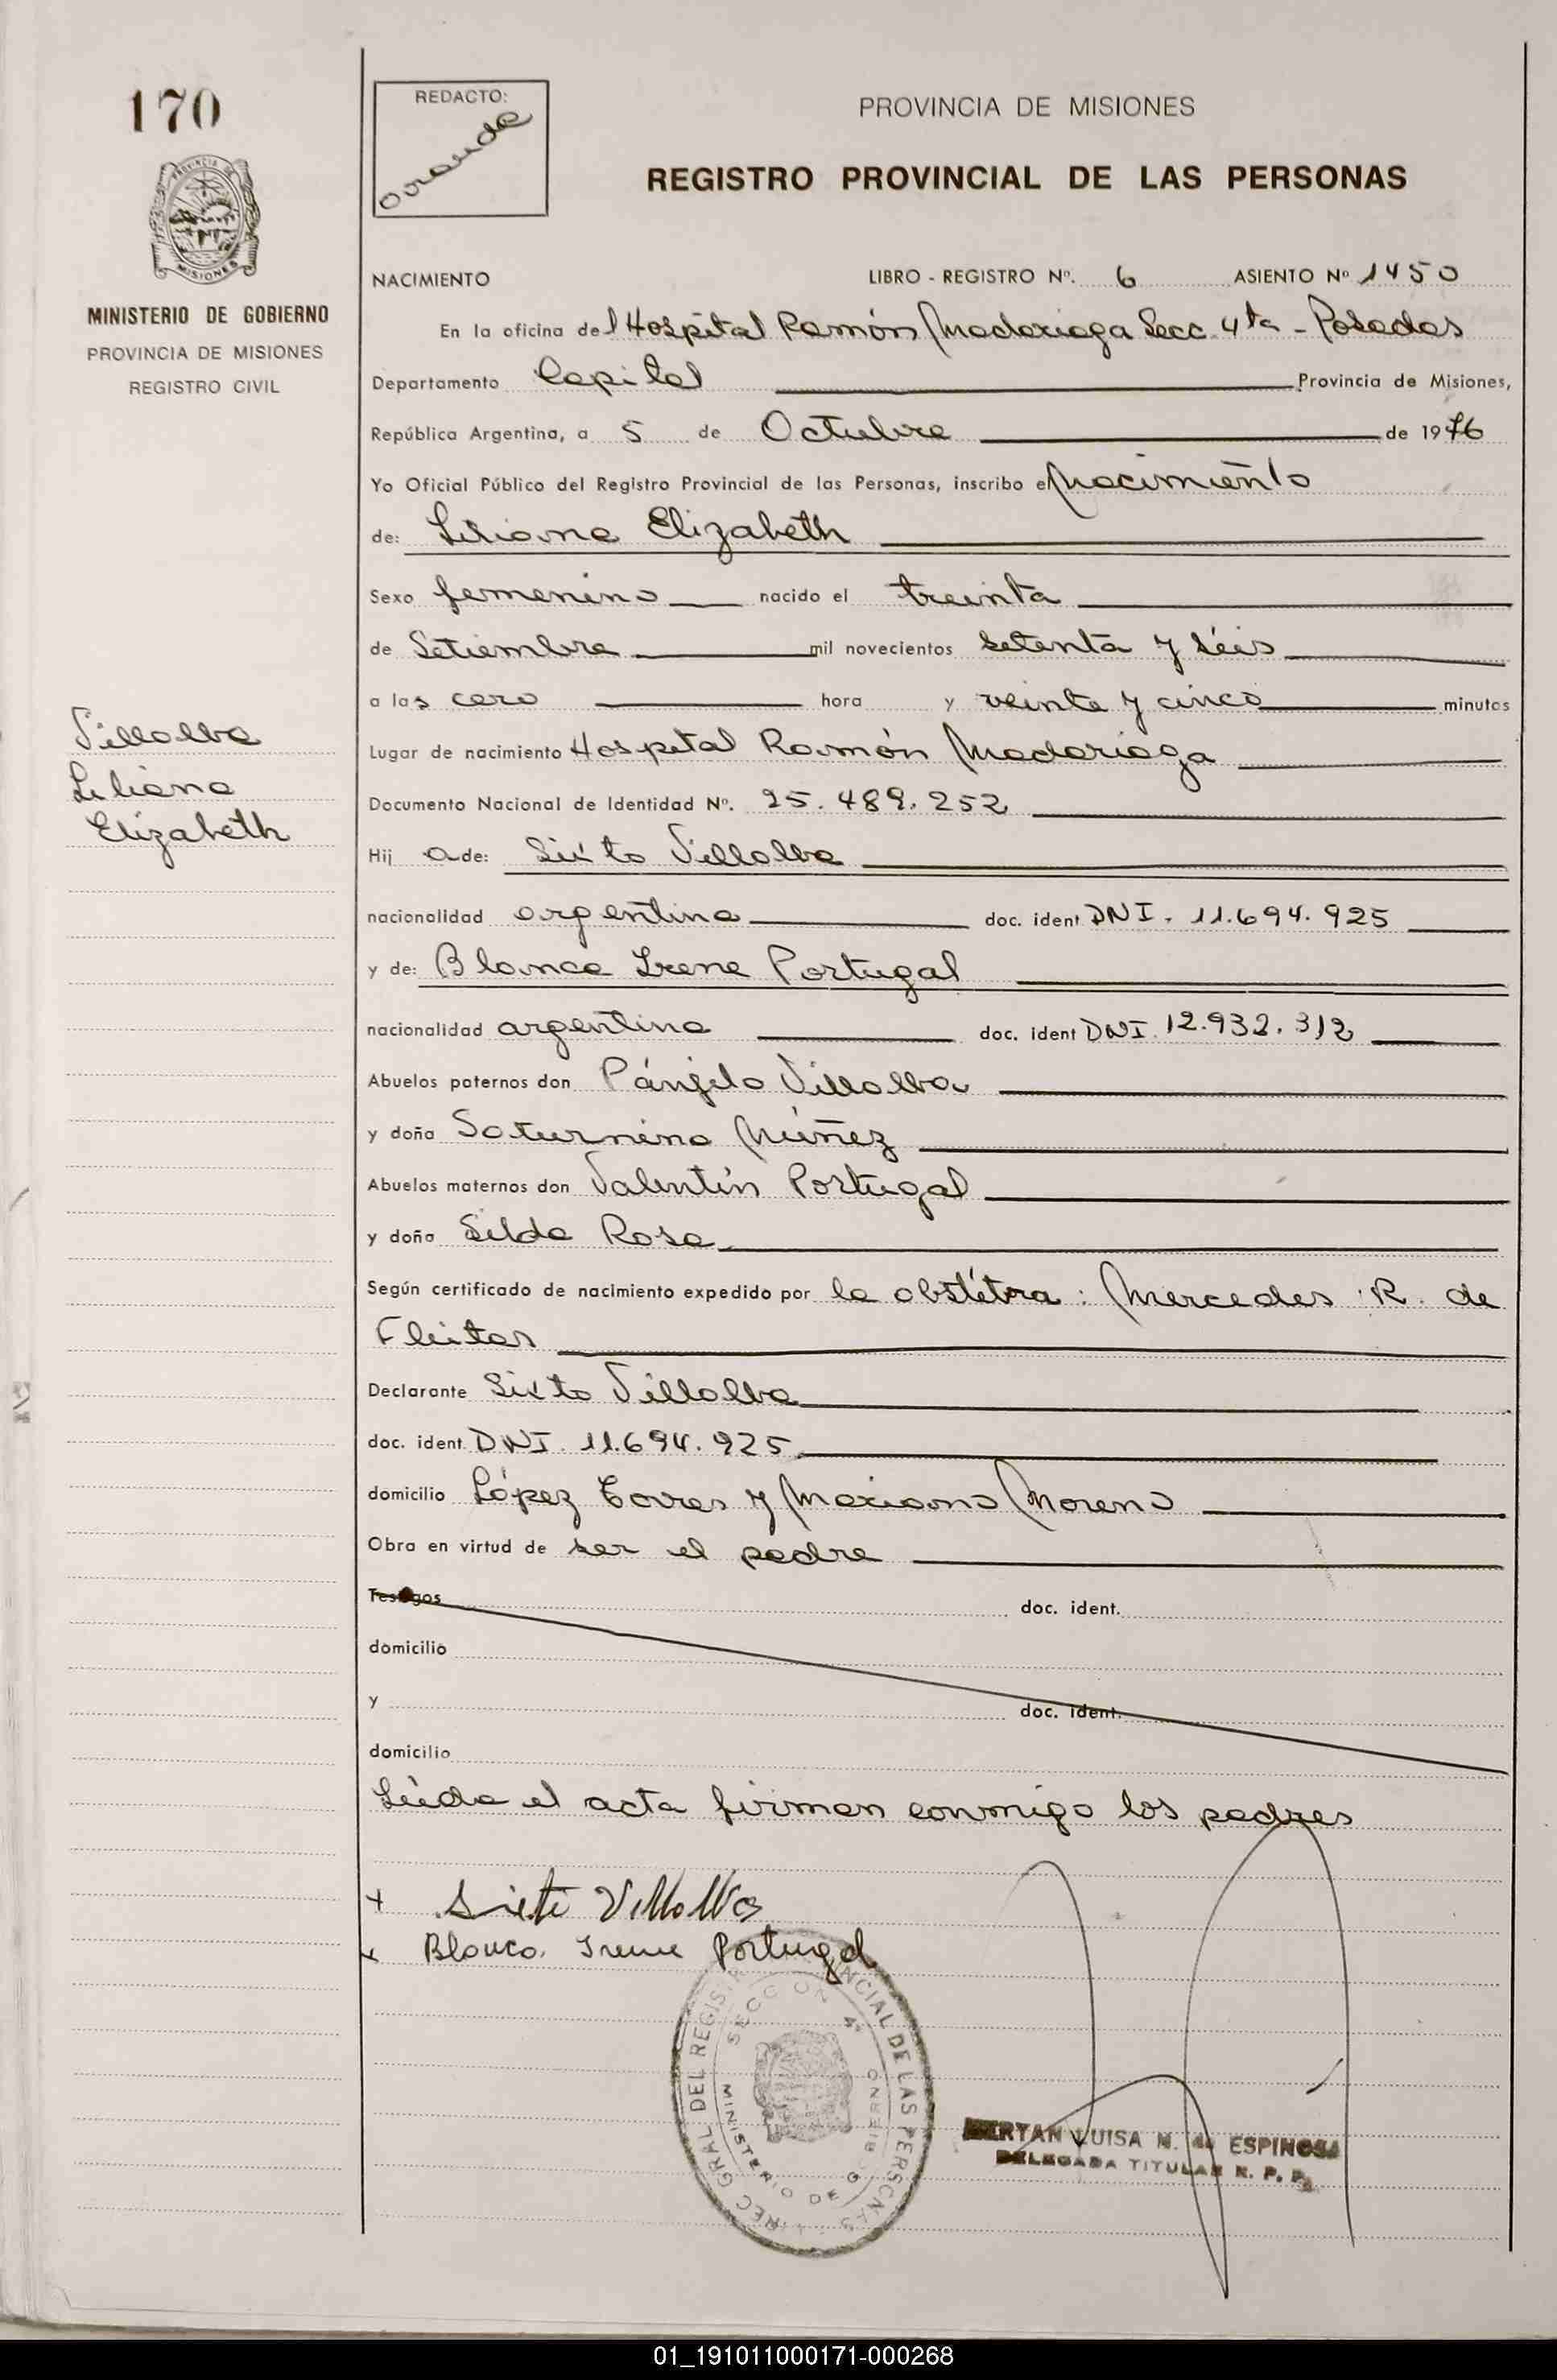 170
PROVINCIA DE
MISIONES
MINISTERIO DE GOBIERNO
PROVINCIA DE MISIONES
REGISTRO CIVIL
Villalba
Liliana
Elizabeth
REDACTO:
PROVINCIA DE MISIONES
REGISTRO PROVINCIAL DE LAS PERSONAS
NACIMIENTO LIBRO - REGISTRO Nº. 6 ASIENTO Nº 1450
En la oficina del Hospital Ramón Madariaga Secc. 4ta - Posadas
Departamento Capital Provincia de Misiones,
República Argentina, a 5 de Octubre de 1976
Yo Oficial Público del Registro Provincial de las Personas, inscribo el Nacimiento
de: Liliana Elizabeth
Sexo femenino nacido el treinta
de Setiembre mil novecientos setenta y séis
a las cero hora y veinte y cinco minutos
Lugar de nacimiento Hospital Ramón Madariaga
Documento Nacional de Identidad Nº. 25.489.252
Hij a de: Sixto Villalba
nacionalidad argentina doc. ident DNI. 11.694.925
y de: Blanca Irene Portugal
nacionalidad argentina doc. ident DNI. 12.932.312
Abuelos paternos don Villalba
y doña Saturnina Núñez
Abuelos maternos don Valentín Portugal
y doña Silda Rosa
Según certificado de nacimiento expedido por la obstétra: Mercedes R. de
Fleitas
Declarante Sixto Villalba
doc. ident. DNI. 11.694.925
domicilio López Torres y Mariano Moreno
Obra en virtud de ser el padre
Testigos doc. ident.
domicilio
y doc. ident.
domicilio
Leída el acta firman conmigo los padres
Villalba
Blanca Irene Portugal
DIREC GRAL DEL REGISTRO PROVINCIAL DE LAS PERSONAS
SECCION 4ª
MINISTERIO DE GOBIERNO
LUISA N. de ESPINOSA
DELEGADA TITULAR R. P. P.
01_191011000171-000268